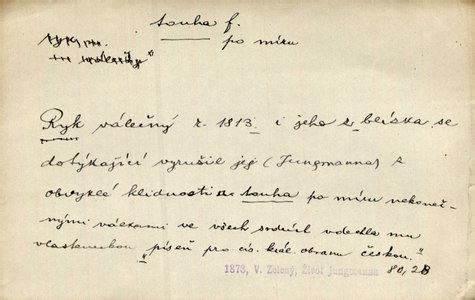 touha f.
po míru
Ryk válečný r. 1813 i jeho z blízka se
dotýkající vyrušil jej (Jungmanna) z
obvyklé klidnosti touha po míru nekoneč-
nými válkami ve všech srdcích vdechla mu
vlasteneckou „píseň pro cís. král. obranu českou."
1873, V. Zelený, Život Jungmanna 80, 28